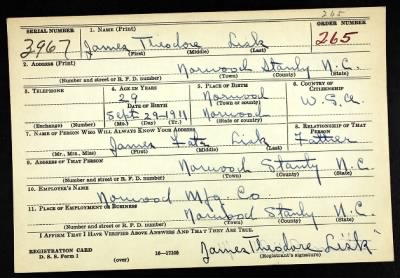 265
SERIAL NUMBER 1. NAME (Print) ORDER NUMBER
3967 James Theodore Lisk 265
(First) (Middle) (Last)
2. ADDRESS (Print)
Norwood Stanly N.C.
(Number and street or R. F. D. number) (Town) (County) (State)
3. TELEPHONE 4. AGE IN YEARS 5. PLACE OF BIRTH 6. COUNTRY OF CITIZENSHIP
29 Norwood
DATE OF BIRTH (Town or county)
Sept 29-1911 Norwood U.S.A
(Exchange) (Number) (Mo.) (Day) (Yr.) (State or country)
7. NAME OF PERSON WHO WILL ALWAYS KNOW YOUR ADDRESS 8. RELATIONSHIP OF THAT PERSON
James Lisk Father
(Mr., Mrs., Miss) (First) (Middle) (Last)
9. ADDRESS OF THAT PERSON
Norwood Stanly N.C.
(Number and street or R. F. D. number) (Town) (County) (State)
10. EMPLOYER'S NAME
Norwood Mfg. Co
11. PLACE OF EMPLOYMENT OR BUSINESS
Norwood Stanly N.C.
(Number and street or R. F. D. number) (Town) (County) (State)
I AFFIRM THAT I HAVE VERIFIED ABOVE ANSWERS AND THAT THEY ARE TRUE.
REGISTRATION CARD
D. S. S. Form 1 (over) 16-17105 James Theodore Lisk
(Registrant's signature)